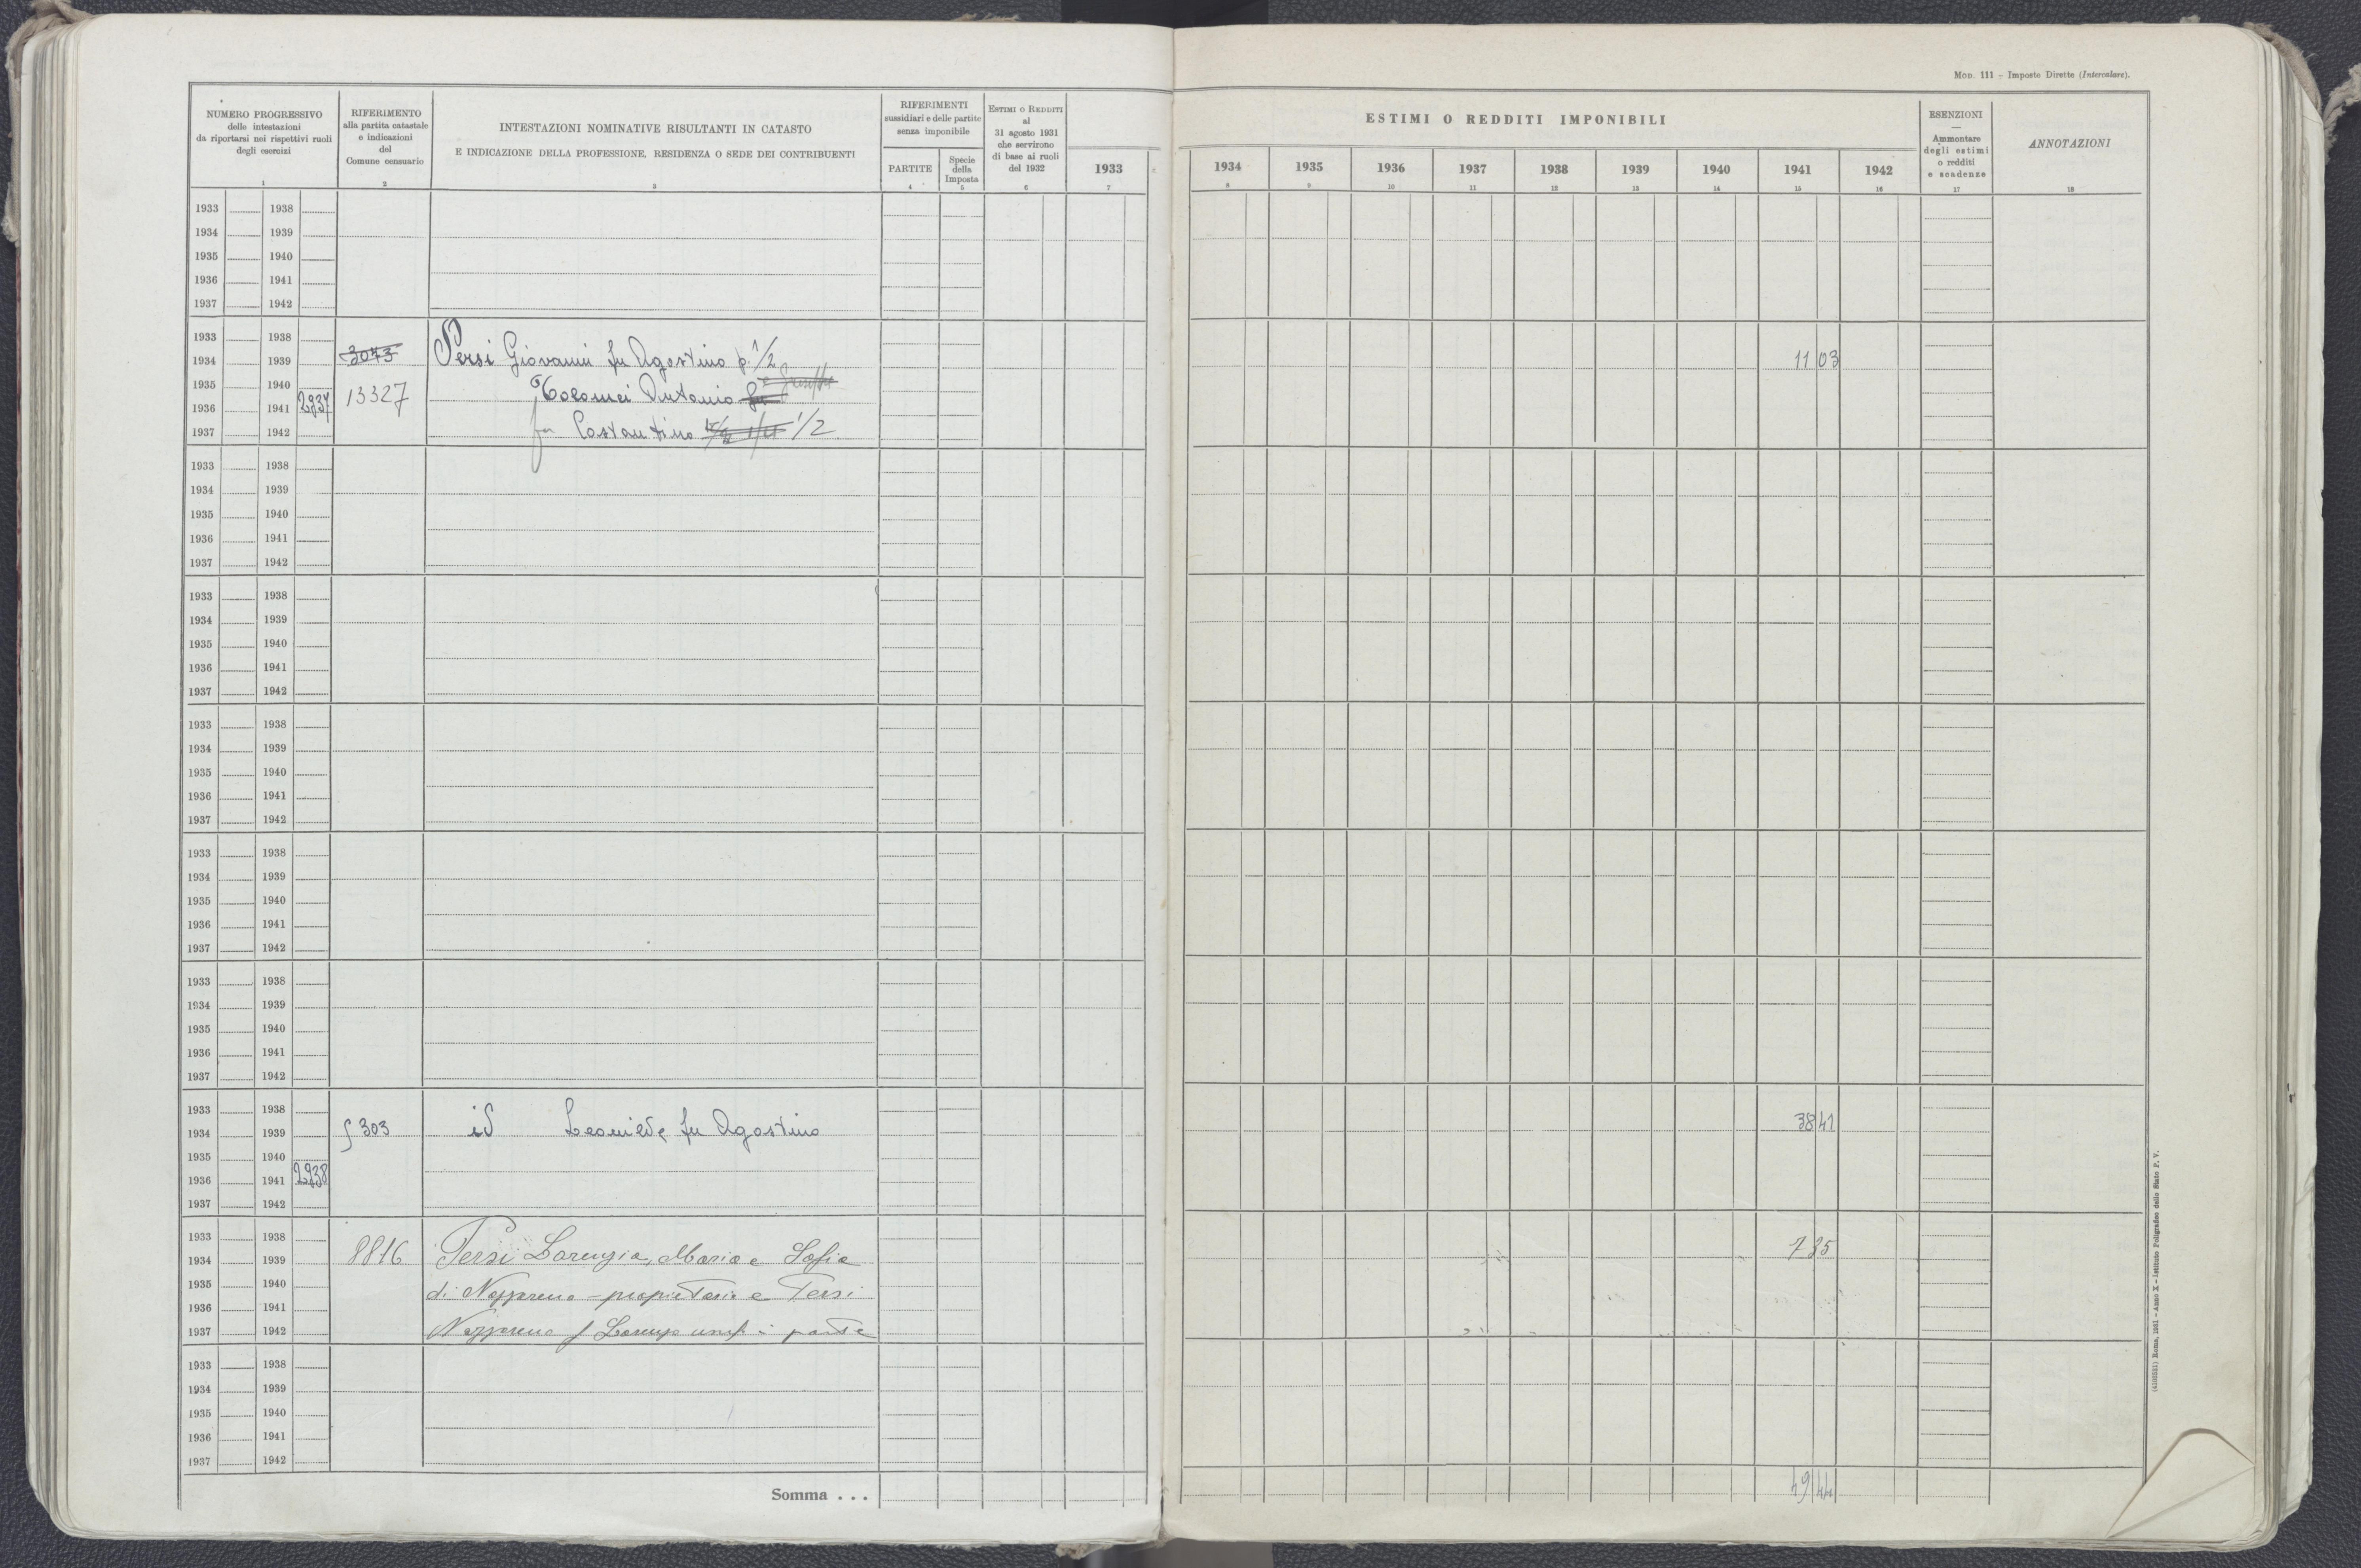 MOD. 111 - Imposte Dirette (Intercalare).
NUMERO PROGRESSIVO
delle intestazioni
da riportarsi nei rispettivi ruoli
degli esercizi
1
RIFERIMENTO
alla partita catastale
e indicazioni
del
Comune censuario
2
INTESTAZIONI NOMINATIVE RISULTANTI IN CATASTO
E INDICAZIONE DELLA PROFESSIONE, RESIDENZA O SEDE DEI CONTRIBUENTI
3
RIFERIMENTI
sussidiari e delle partite
senza imponibile
PARTITE
4
Specie
della
Imposta
5
ESTIMI O REDDITI
al
31 agosto 1931
che servirono
di base ai ruoli
del 1932
6
1933
7
ESTIMI O REDDITI IMPONIBILI
1934 1935 1936 1937 1938 1939 1940 1941 1942
8 9 10 11 12 13 14 15 16
ESENZIONI
—
Ammontare
degli estimi
o redditi
e scadenze
17
ANNOTAZIONI
18
1933 1938
1934 1939
1935 1940
1936 1941
1937 1942
1933 1938
1934 1939 3073 Persi Giovanni fu Agostino p. 1/2 11 03
1935 1940 13327 Antonio fu
1936 1941 2937
1937 1942 fu Costantino 1/2
1933 1938
1934 1939
1935 1940
1936 1941
1937 1942
1933 1938
1934 1939
1935 1940
1936 1941
1937 1942
1933 1938
1934 1939
1935 1940
1936 1941
1937 1942
1933 1938
1934 1939
1935 1940
1936 1941
1937 1942
1933 1938
1934 1939
1935 1940
1936 1941
1937 1942
1933 1938
1934 1939 303 id Leonilde fu Agostino 38 41
1935 1940
1936 1941 2938
1937 1942
1933 1938
1934 1939 8816 Persi Lorenzia, Maria e Sofia 7 35
1935 1940 di Nazzareno - proprietarie e Persi
1936 1941
1937 1942 Nazzareno f Lorenzo usuf. in parte
1933 1938
1934 1939
1935 1940
1936 1941
1937 1942
Somma . . . 49 44
Roma, 1931 - Anno X - Istituto Poligrafico dello Stato P. V.